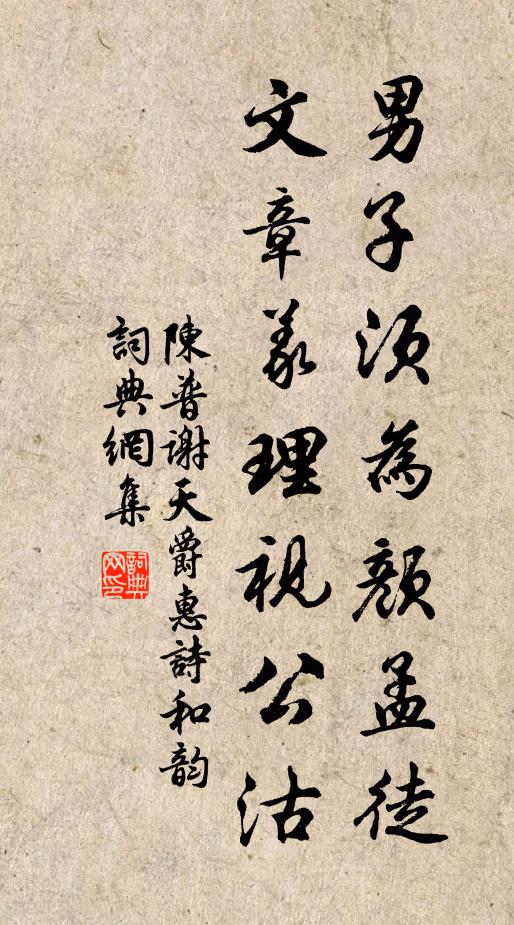 男子須為顏孟徒
文章義理視公沽
陳普謝天爵惠詩和韵
詞典網集
詞典網印